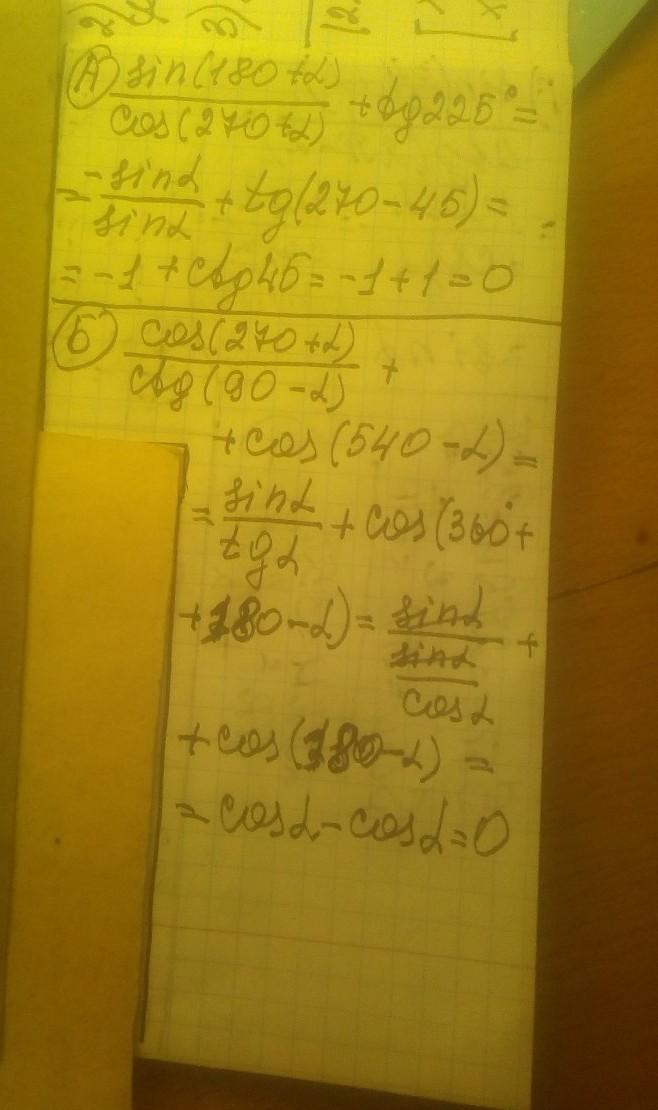 А) sin(180+α)/cos(270+α) + tg225° =
= -sinα/sinα + tg(270-45) =
= -1 + ctg45 = -1+1=0
Б) cos(270+α)/ctg(90-α) +
+cos(540-α) =
= sinα/tgα + cos(360°+
+180-α) = sinα/(sinα/cosα) +
+cos(180-α) =
= cosα-cosα=0